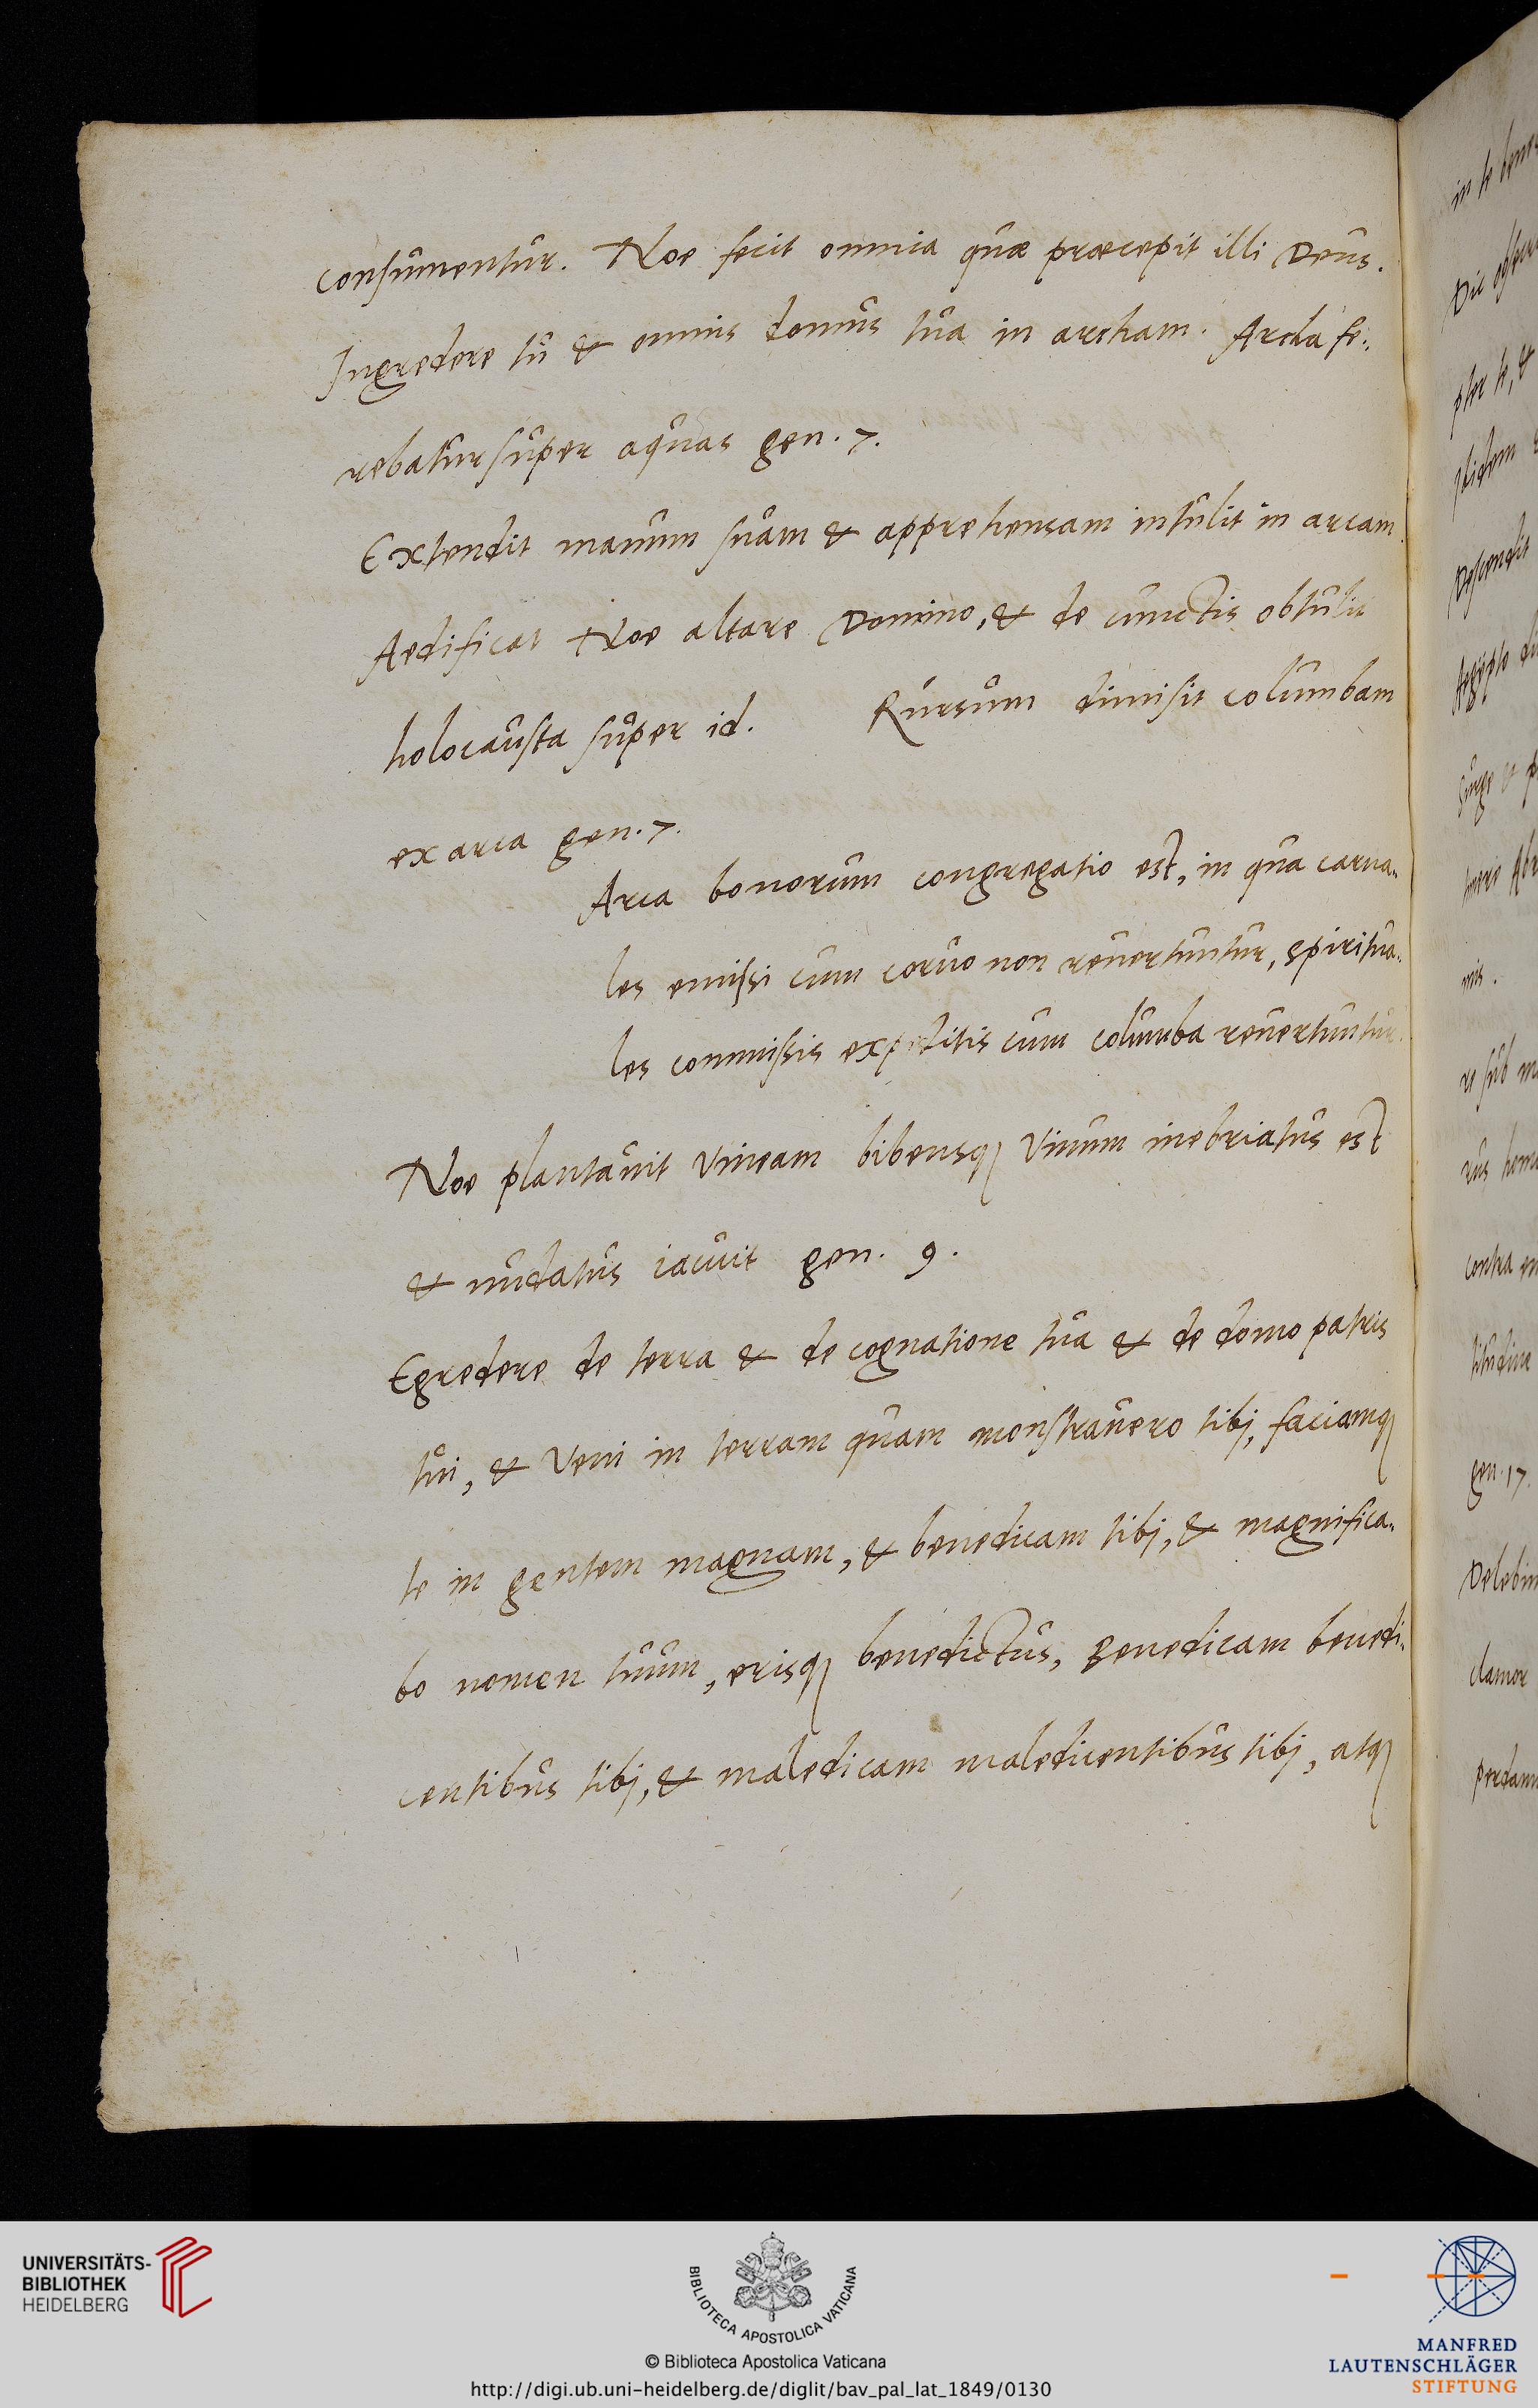 consumentur. Noe fecit omnia quæ præcepit illi Deus.
Ingredere tu & omnis domus tua in archam. Archa fe:
rebatur super aquas gen. 7.
Extendit manum suam & apprehensam intulit in arcam.
Aedificat Noe altare Domino, & de cunctis obtulit
holocausta super id. Rursum dimisit columbam
ex arca gen. 7.
Arca bonorum congregatio est, in qua carna:
les emissi cum corvo non revertuntur, spiritua:
les commissis expeditis cum columba revertuntur.
Noe plantavit vineam bibensq vinum inebriatus est
& nudatus iacuit gen. 9.
Egredere de terra & de cognatione tua & de domo patris
tui, & veni in terram quam monstravero tibj, faciamq
te in gentem magnam, & benedicam tibj, & magnifica:
bo nomen tuum, erisq benedictus, Benedicam benedi:
centibus tibj, & maledicam maledicentibus tibj, atq
in te
Dic
te, &
Descendit
Aegypto
Surge et
mis.
re sub
rus
contra
titudine
gen. 17.
clamor
UNIVERSITÄTS-
BIBLIOTHEK
HEIDELBERG
BIBLIOTECA APOSTOLICA VATICANA
© Biblioteca Apostolica Vaticana
http://digi.ub.uni-heidelberg.de/diglit/bav_pal_lat_1849/0130
MANFRED
LAUTENSCHLÄGER
STIFTUNG